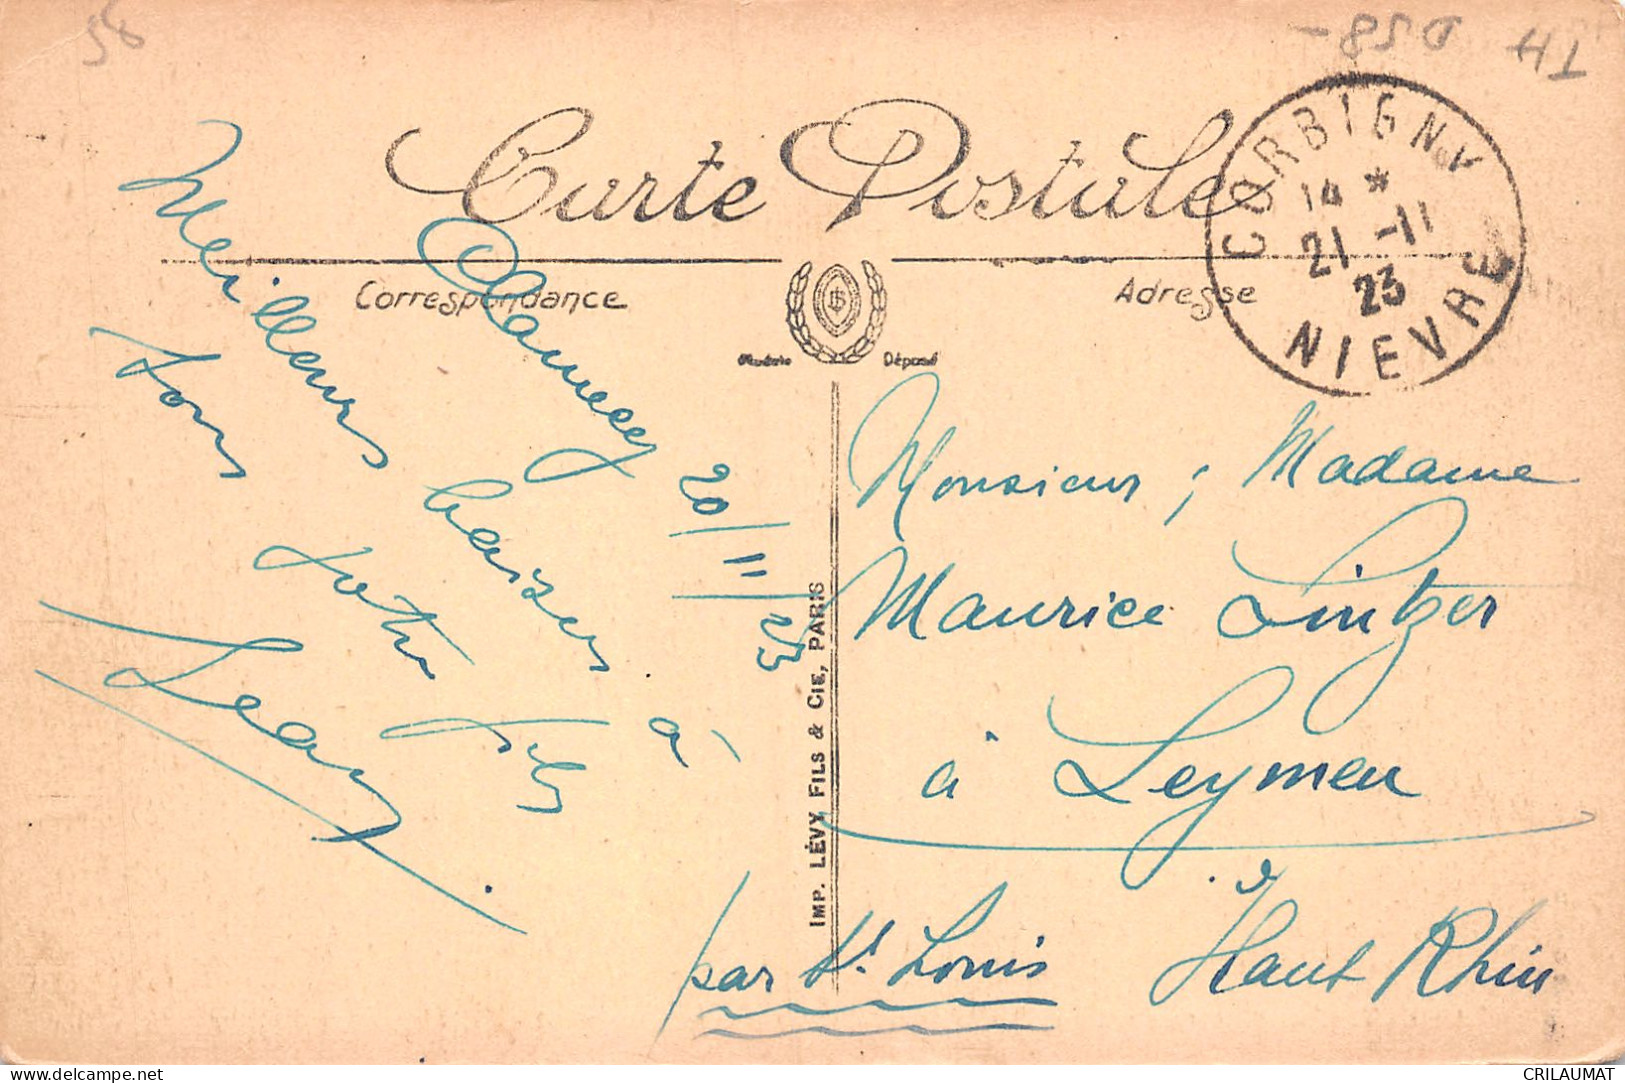 56
TH
D58-
Carte Postale
CORBIGNY
14 *
21-11
23
NIEVRE
Correspondance
Adresse
Modèle Déposé
Clamecy 20/11/23
Meilleurs baisers à
tous
votre fils
Jean
IMP. LÉVY FILS & CIE, PARIS
Monsieur, Madame
Maurice Lintzer
à Leymen
par St. Louis Haut Rhin
CRILAUMAT